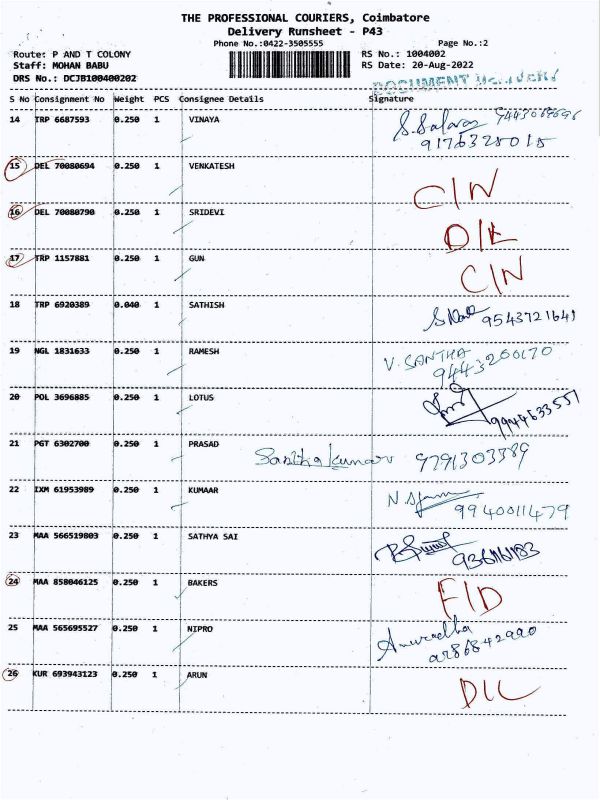 THE PROFESSIONAL COURIERS, Coimbatore
Delivery Runsheet - P43
Phone No.:0422-3505555 Page No.:2
Route: P AND T COLONY RS No.: 1004002
Staff: MOHAN BABU RS Date: 20-Aug-2022
DRS No.: DCJB100400202
DOCUMENT DELIVERY
S No Consignment No Weight PCS Consignee Details Signature
14 TRP 6687593 0.250 1 VINAYA
15 DEL 70080694 0.250 1 VENKATESH C/N
16 DEL 70080790 0.250 1 SRIDEVI D/L
17 TRP 1157881 0.250 1 GUN C/N
18 TRP 6920389 0.040 1 SATHISH 9543721641
19 NGL 1831633 0.250 1 RAMESH V. SANTHA
9443200170
20 POL 3696885 0.250 1 LOTUS
9944633551
21 PGT 6302700 0.250 1 PRASAD 9791303389
22 IXM 61953989 0.250 1 KUMAAR
9940011479
23 MAA 566519803 0.250 1 SATHYA SAI
24 MAA 858046125 0.250 1 BAKERS
25 MAA 565695527 0.250 1 NIPRO Anuradha
26 KUR 693943123 0.250 1 ARUN D/L